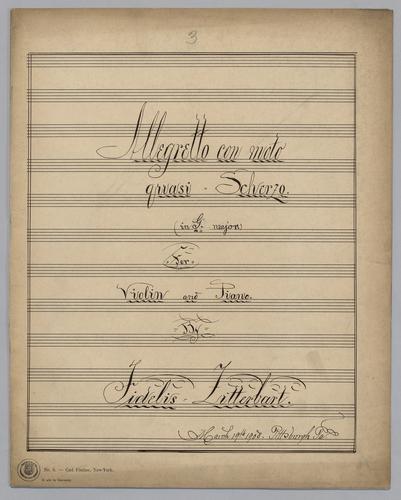 3
Allegretto con moto
quasi - Scherzo.
(in G. major)
For
Violin and Piano.
By
Fidelis - Zitterbart.
March 19th 1908. Pittsburgh Pa
No. 6. — Carl Fischer, New-York.